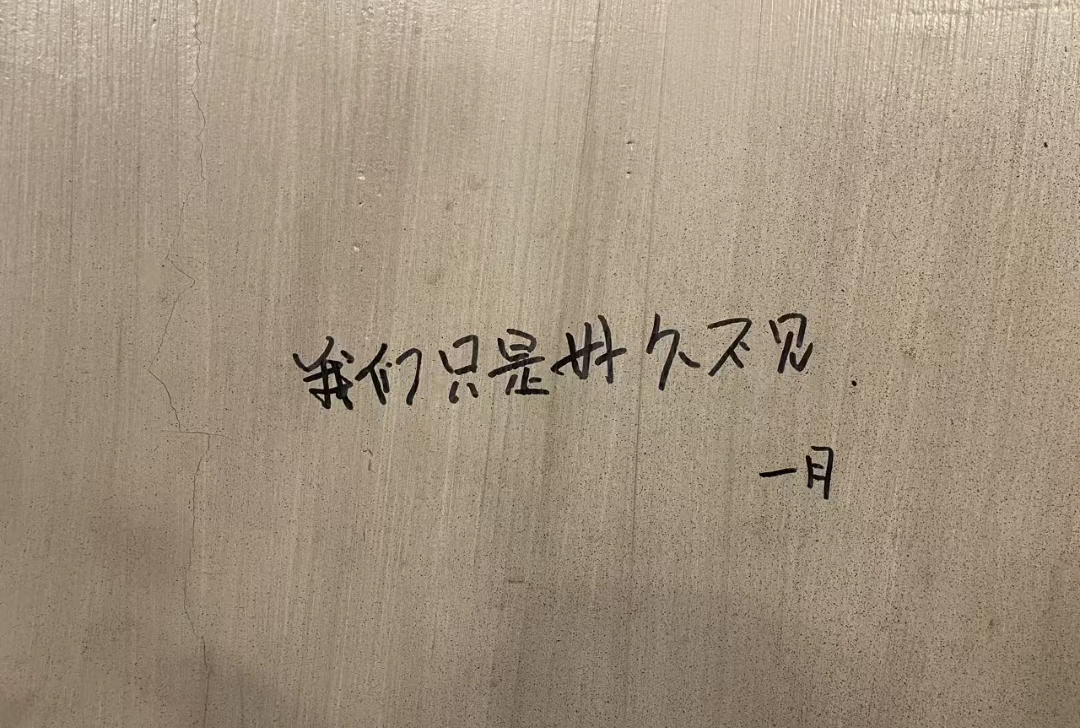 我们只是好久不见.
一月